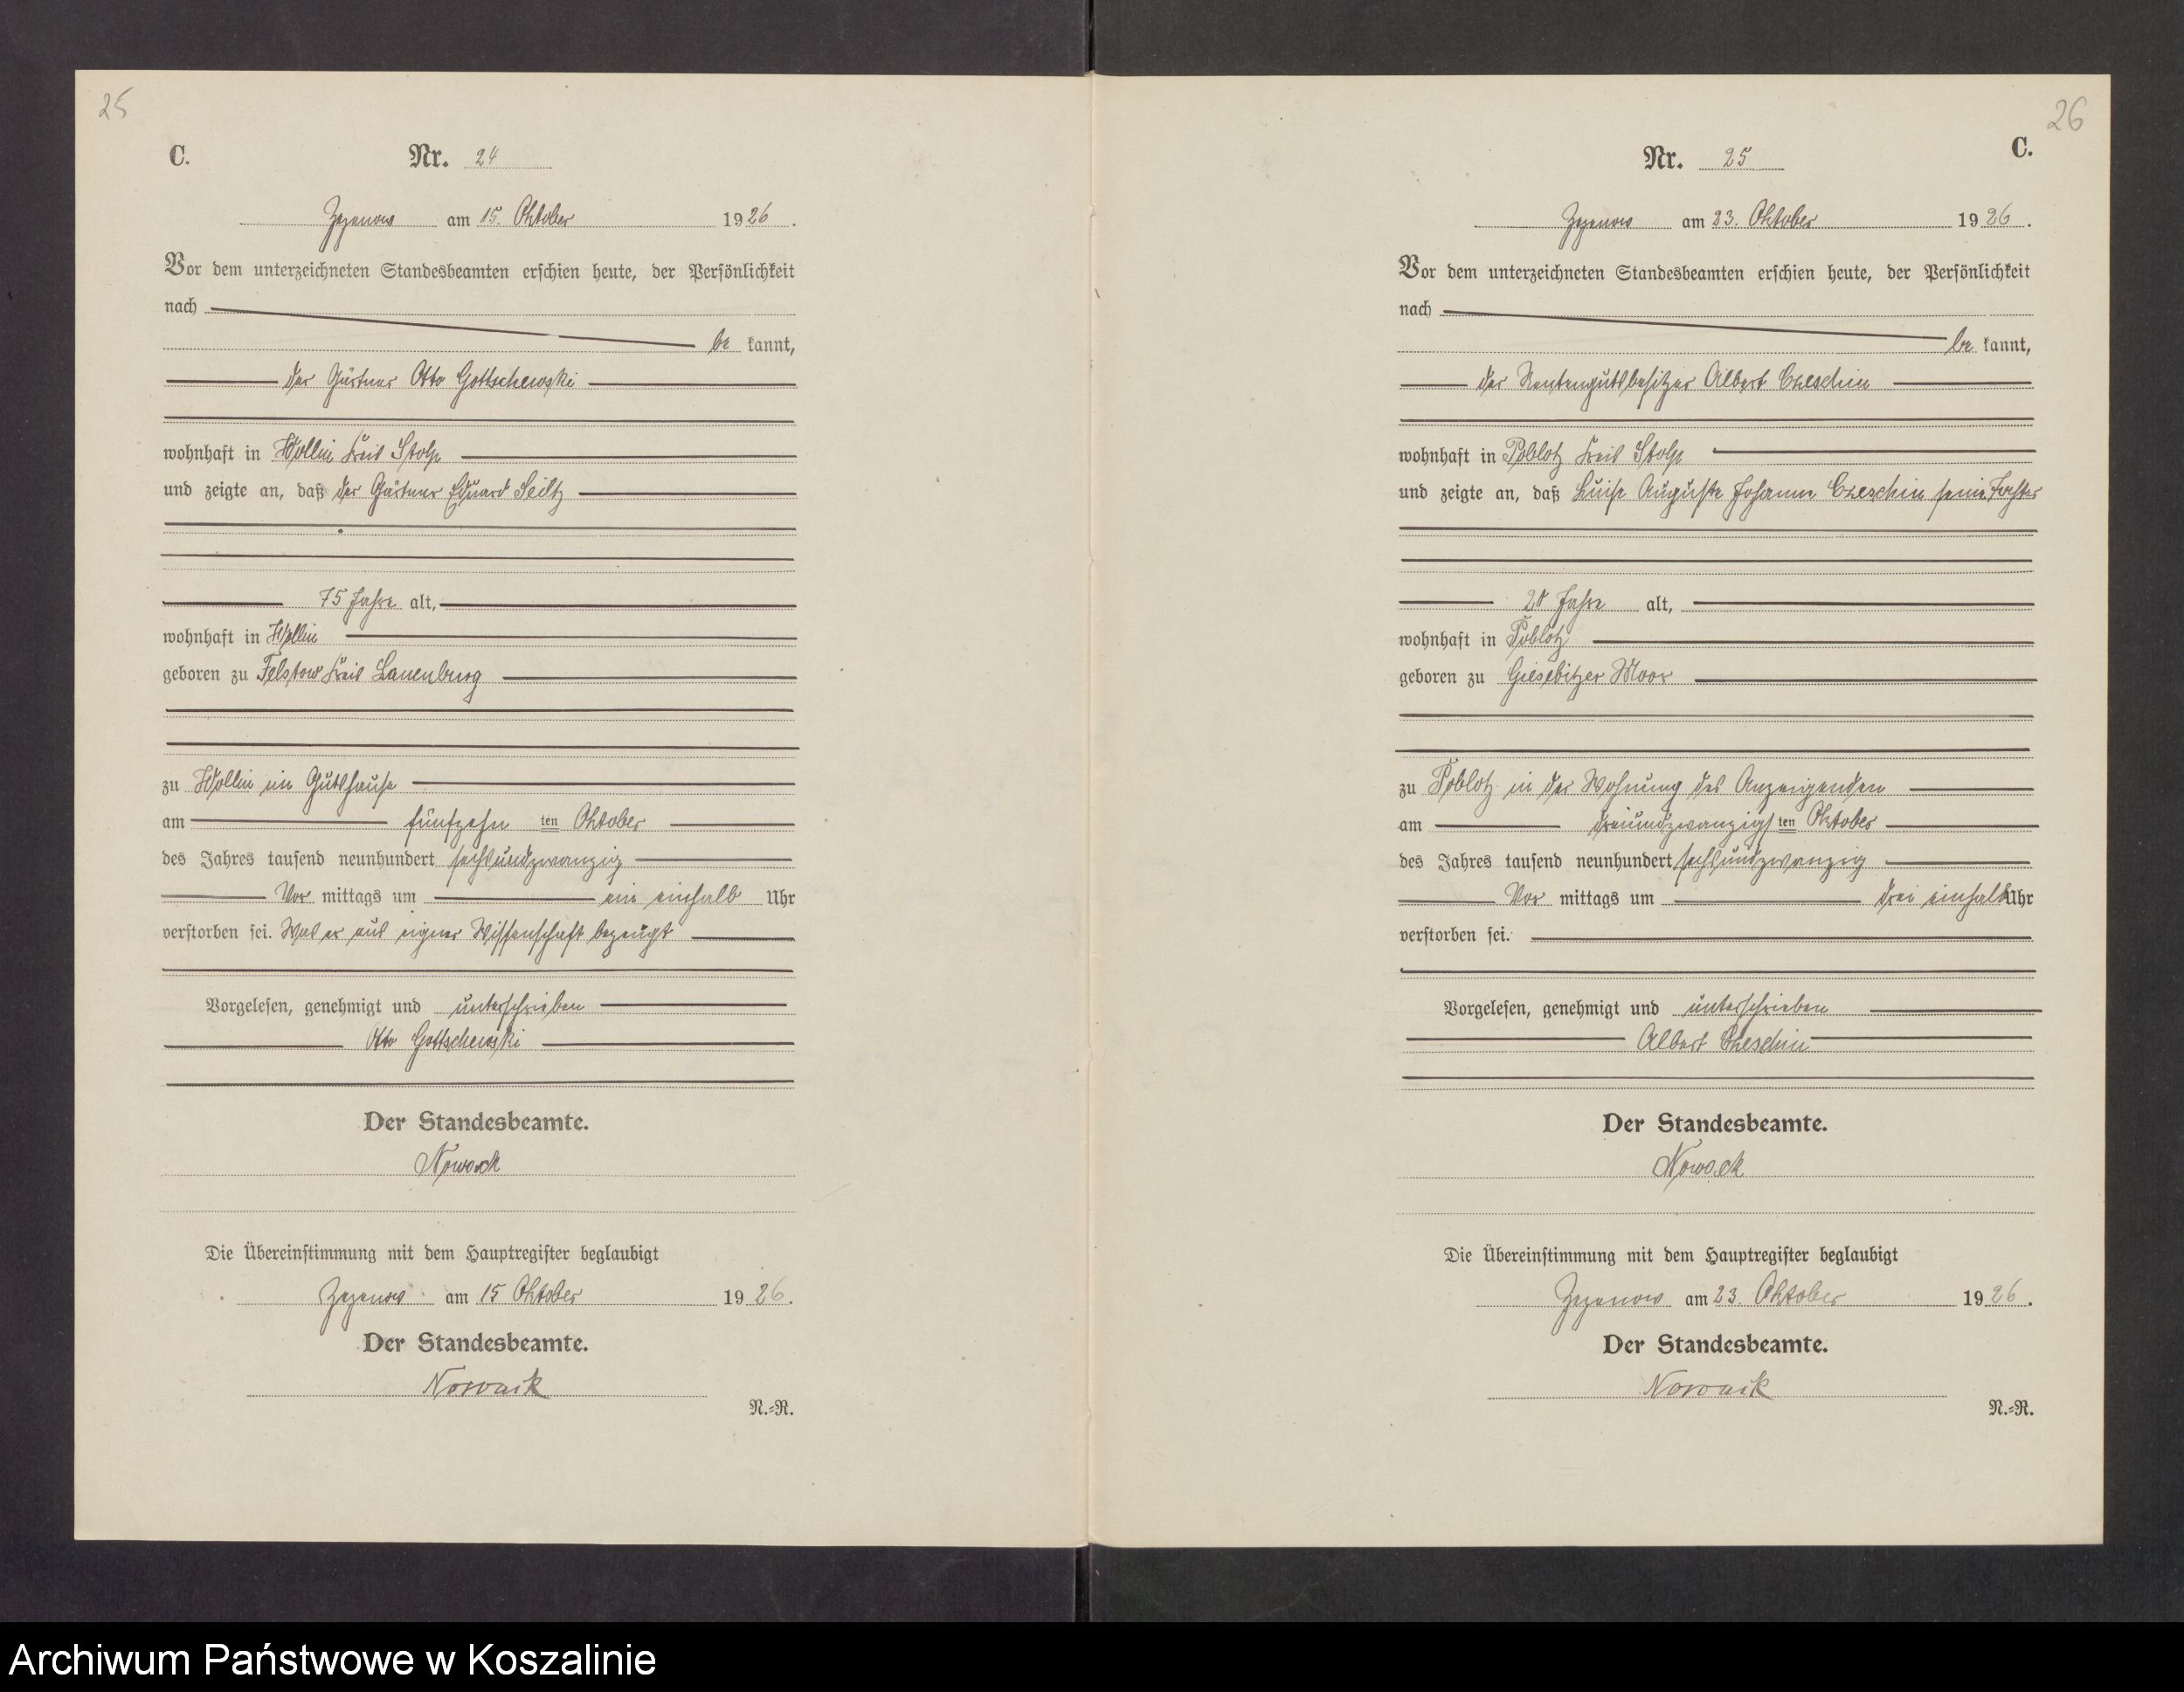 25
C.
Nr. 24
Zezenow am 15. Oktober 1926.
Vor dem unterzeichneten Standesbeamten erschien heute, der Persönlichkeit
nach
be kannt,
der Gärtner Otto Gottschewski
wohnhaft in Wollin Kreis Stolp
und zeigte an, daß der Gärtner Eduard Seiltz
75 Jahre alt,
wohnhaft in Wollin
geboren zu Felstow Kreis Lauenburg
zu Wollin im Gutshause
am fünfzehn ten Oktober
des Jahres tausend neunhundert sechsundzwanzig
Vor mittags um ein einhalb Uhr
verstorben sei. Was er aus eigner Wissenschaft bezeugt
Vorgelesen, genehmigt und unterschrieben
Otto Gottschewski
Der Standesbeamte.
Nowack
Die Übereinstimmung mit dem Hauptregister beglaubigt
Zezenow am 15 Oktober 1926.
Der Standesbeamte.
Nowack
N.=R.
26
C.
Nr. 25
Zezenow am 23. Oktober 1926.
Vor dem unterzeichneten Standesbeamten erschien heute, der Persönlichkeit
nach
be kannt,
der Rentengutsbesitzer Albert Czeschin
wohnhaft in Poblotz Kreis Stolp
und zeigte an, daß Luise Auguste Johanne Czeschin seine Tochter
20 Jahre alt,
wohnhaft in Poblotz
geboren zu Giesebitzer Moor
zu Poblotz in der Wohnung des Anzeigenden
am dreiundzwanzigs ten Oktober
des Jahres tausend neunhundert sechsundzwanzig
Vor mittags um drei einhalb Uhr
verstorben sei.
Vorgelesen, genehmigt und unterschrieben
Albert Czeschin
Der Standesbeamte.
Nowack
Die Übereinstimmung mit dem Hauptregister beglaubigt
Zezenow am 23. Oktober 1926.
Der Standesbeamte.
Nowack
N.=R.
Archiwum Państwowe w Koszalinie